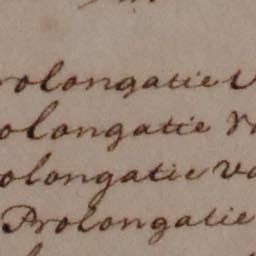 rolongatie V
olongatie V
olongatie va
Prolongatie